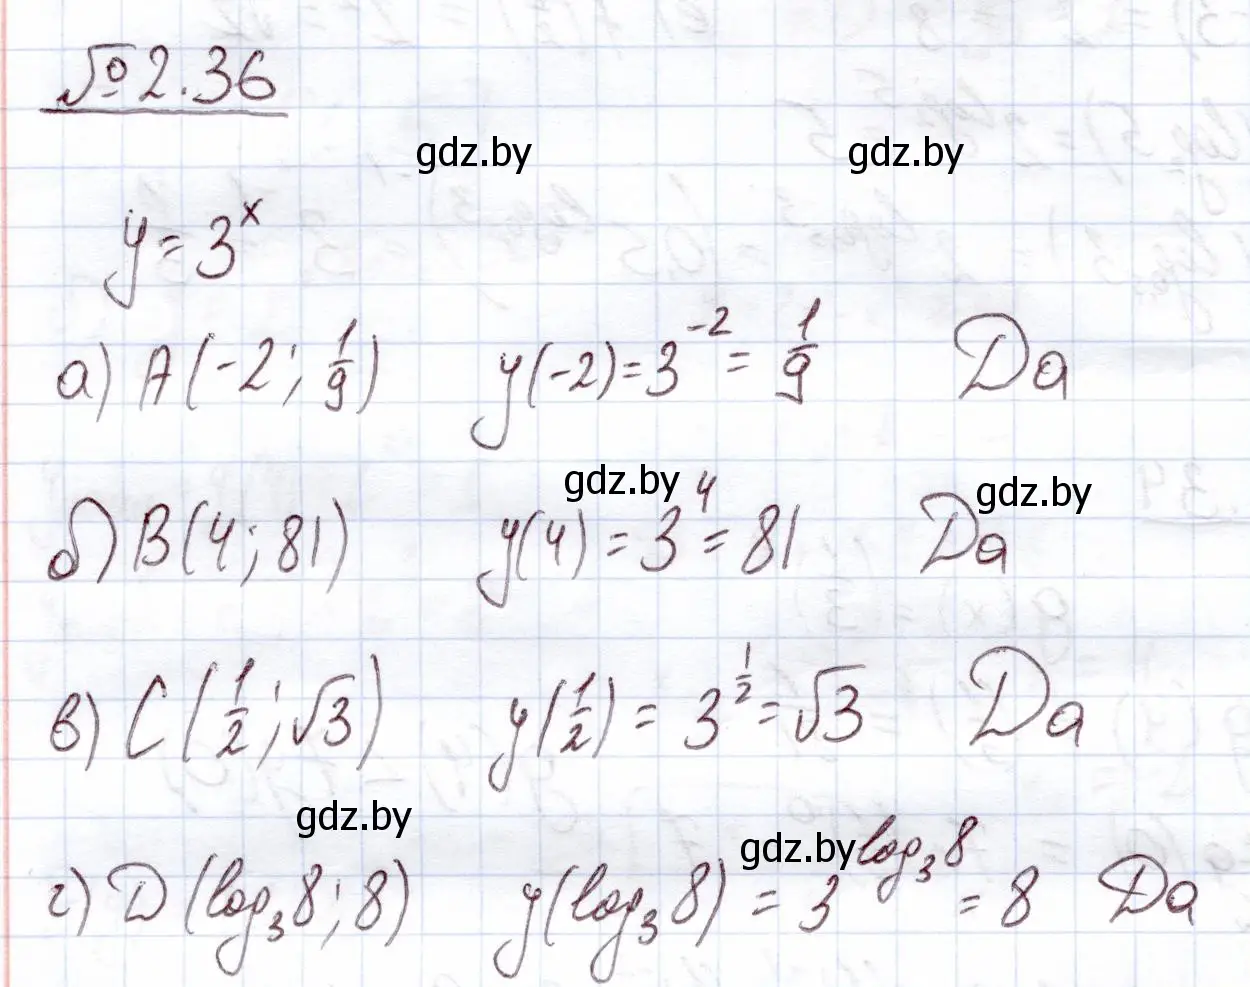 № 2.36
gdz.by gdz.by
y = 3^x
а) A(-2; 1/9) y(-2) = 3^-2 = 1/9 Да
gdz.by gdz.by
б) B(4; 81) y(4) = 3^4 = 81 Да
в) C(1/2; √3) y(1/2) = 3^1/2 = √3 Да
gdz.by gdz.by
г) D(log₃8; 8) y(log₃8) = 3^log₃8 = 8 Да